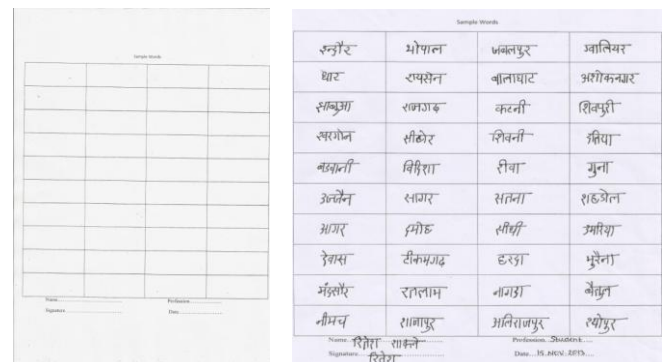 Sample Words
Name
Profession
Signature
Date
Sample Words
इन्दौर भोपाल जबलपुर ग्वालियर
धार रायसेन बालाघाट अशोकनगर
झाबुआ राजगढ़ कटनी शिवपुरी
खरगोन सीहोर शिवनी दतिया
बडवानी विदिशा रीवा गुना
उज्जैन सागर सतना शहडोल
आगर दमोह सीधी उमरिया
देवास टीकमगढ़ हरदा मुरैना
मंदसौर रतलाम नागदा बैतुल
नीमच शाजापुर अलिराजपुर श्योपुर
Name रितेश साकले Profession Student
Signature रितेश Date 15.NOV.2013